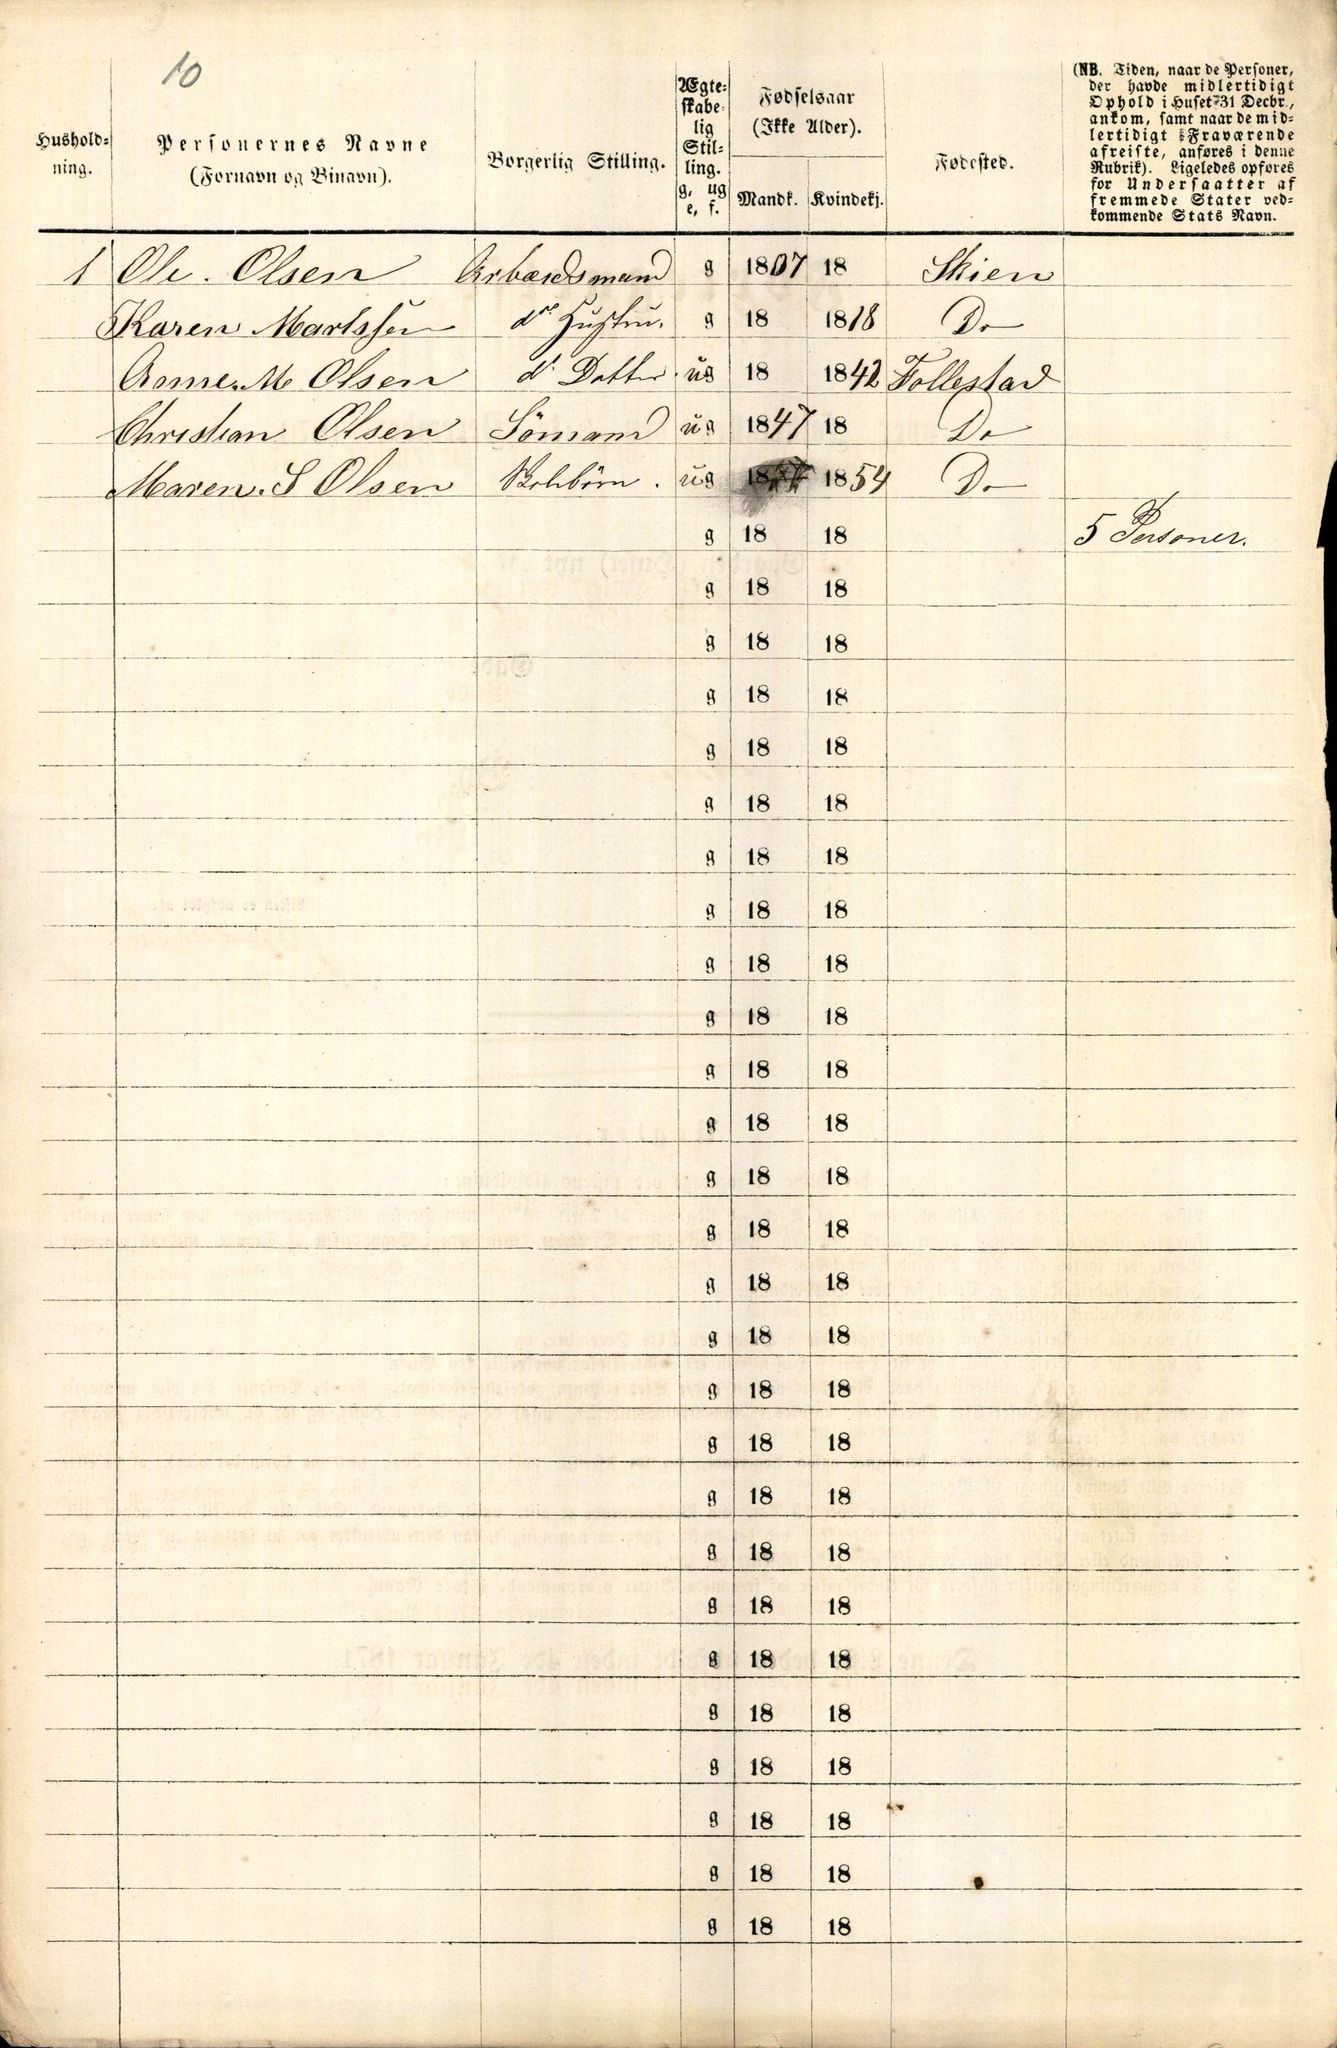 10
Hushold=
ning.
Personernes Navne
(Fornavn og Binavn).
Borgerlig Stilling.
Ægte=
skabe=
lig
Stil=
ling.
g, ug
e, f.
Fødselsaar
(Ikke Alder).
Mandk. Kvindekj.
Fødested.
(NB. Tiden, naar de Personer,
der havde midlertidigt
Ophold i Huset 31 Decbr.,
ankom, samt naar de mid=
lertidigt Fraværende
afreiste, anføres i denne
Rubrik). Ligeledes opføres
for Undersaatter af
fremmede Stater ved=
kommende Stats Navn.
1 Ole. Olsen Arbeidsmand g 1807 18 Skien
Karen Martssen do Hustru. g 18 1818 Do
Anne. M Olsen do Datter ug 18 1842 Follestad
Christian Olsen Sömand ug 1847 18 Do
Maren. S Olsen Skolebörn. ug 18 1854 Do
g 18 18 5 Personer.
g 18 18
g 18 18
g 18 18
g 18 18
g 18 18
g 18 18
g 18 18
g 18 18
g 18 18
g 18 18
g 18 18
g 18 18
g 18 18
g 18 18
g 18 18
g 18 18
g 18 18
g 18 18
g 18 18
g 18 18
g 18 18
g 18 18
g 18 18
g 18 18
g 18 18
g 18 18